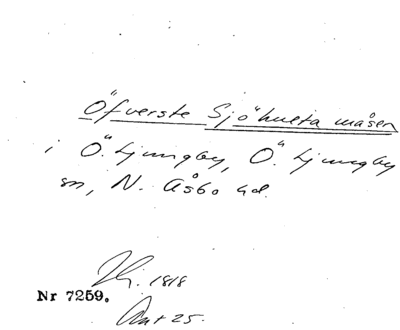 Öfverste Sjöhulta måsen
i Ö. Ljungby, Ö. Ljungby
sn, N. Åsbo hd.
1818
Nr 7259.
Ant 25.